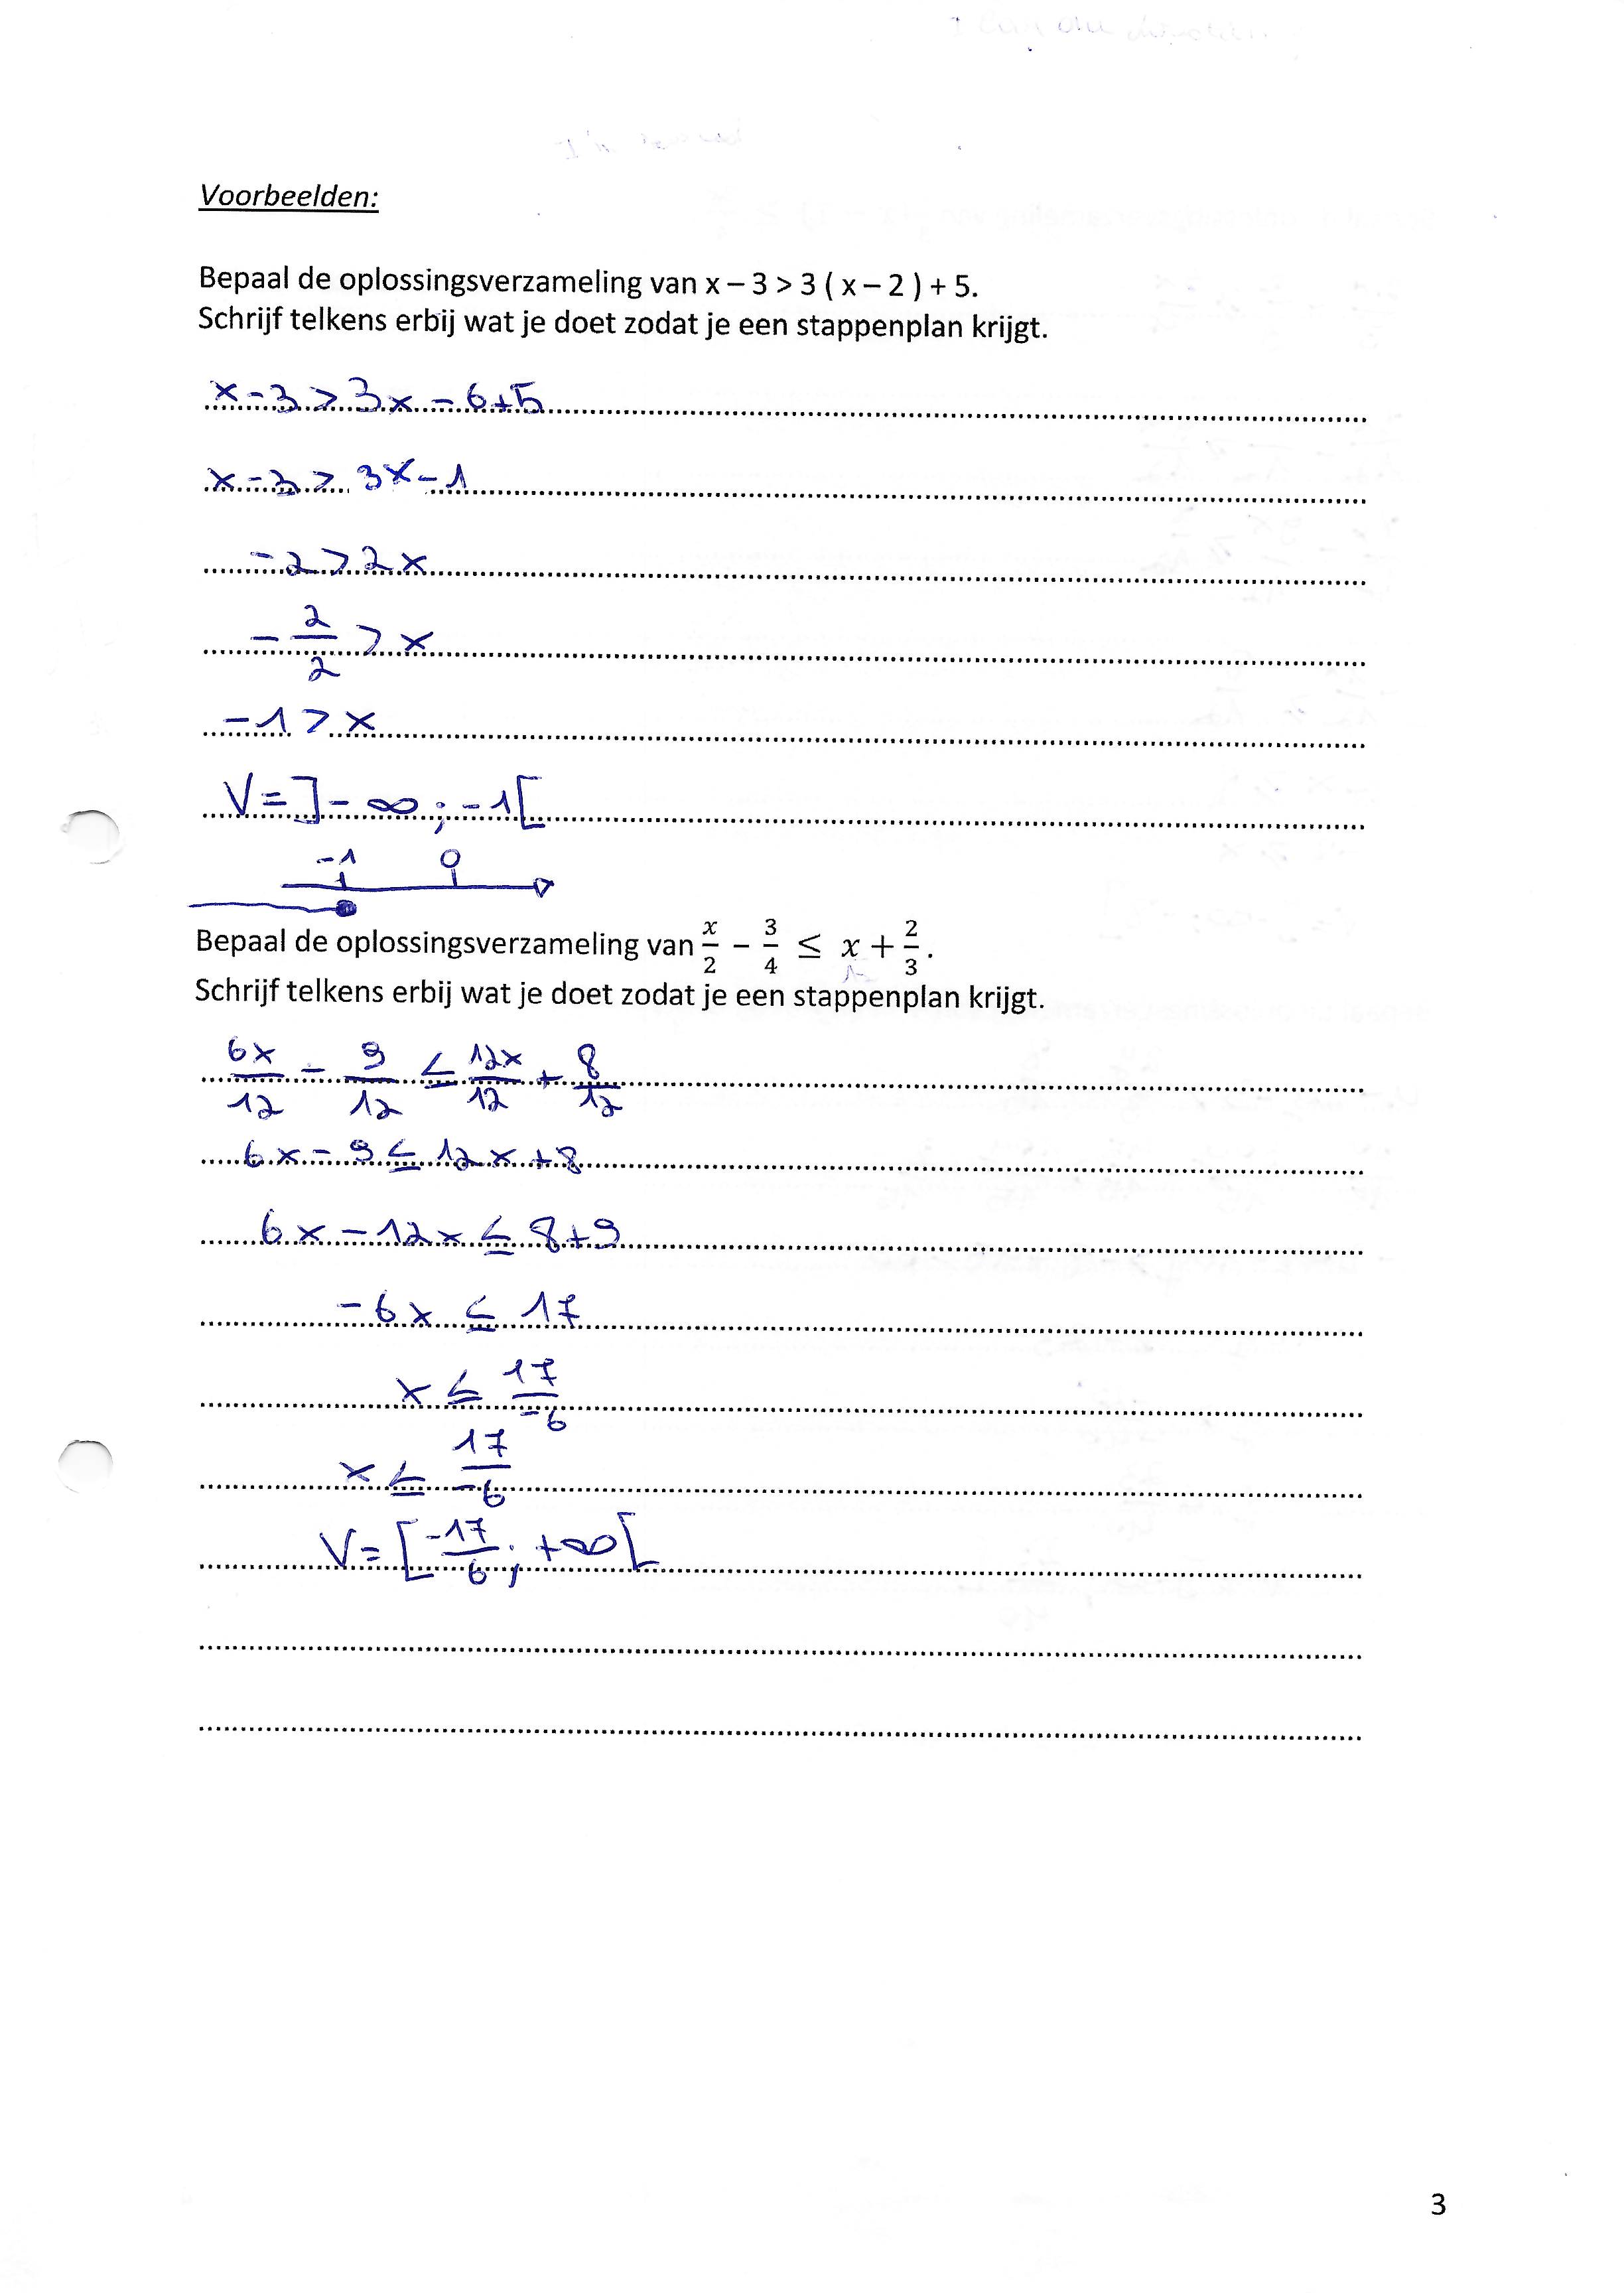 Voorbeelden:
Bepaal de oplossingsverzameling van x – 3 > 3 ( x – 2 ) + 5.
Schrijf telkens erbij wat je doet zodat je een stappenplan krijgt.
x - 3 > 3x - 6 + 5
x - 3 > 3x - 1
-2 > 2x
- 2/2 > x
-1 > x
V = ]-∞ ; -1[
-1 0
Bepaal de oplossingsverzameling van x/2 − 3/4 ≤ x + 2/3.
Schrijf telkens erbij wat je doet zodat je een stappenplan krijgt.
6x/12 - 9/12 ≤ 12x/12 + 8/12
6x - 9 ≤ 12x + 8
6x - 12x ≤ 8 + 9
-6x ≤ 17
x ≤ 17/-6
x ≤ 17/-6
V = [-17/6 ; +∞[
3